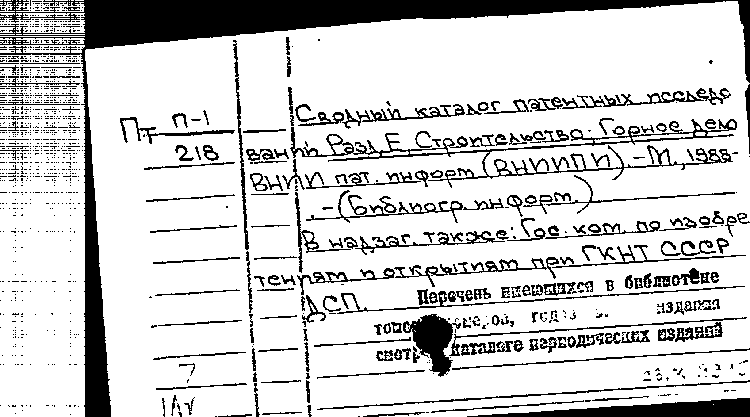 Пт П-1
218
Сводный каталог патентных исследо
ваний Разд. Е. Строительство; Горное дело
ВНИИ пат. информ (ВНИИПИ). – М., 1988-
. – (Библиогр. информ.)
В надзаг. также: Гос. ком. по изобре
тениям и открытиям при ГКНТ СССР
ДСП.
Перечень имеющихся в библиотеке
номеров, годов издания
смотр каталоге периодических изданий
7